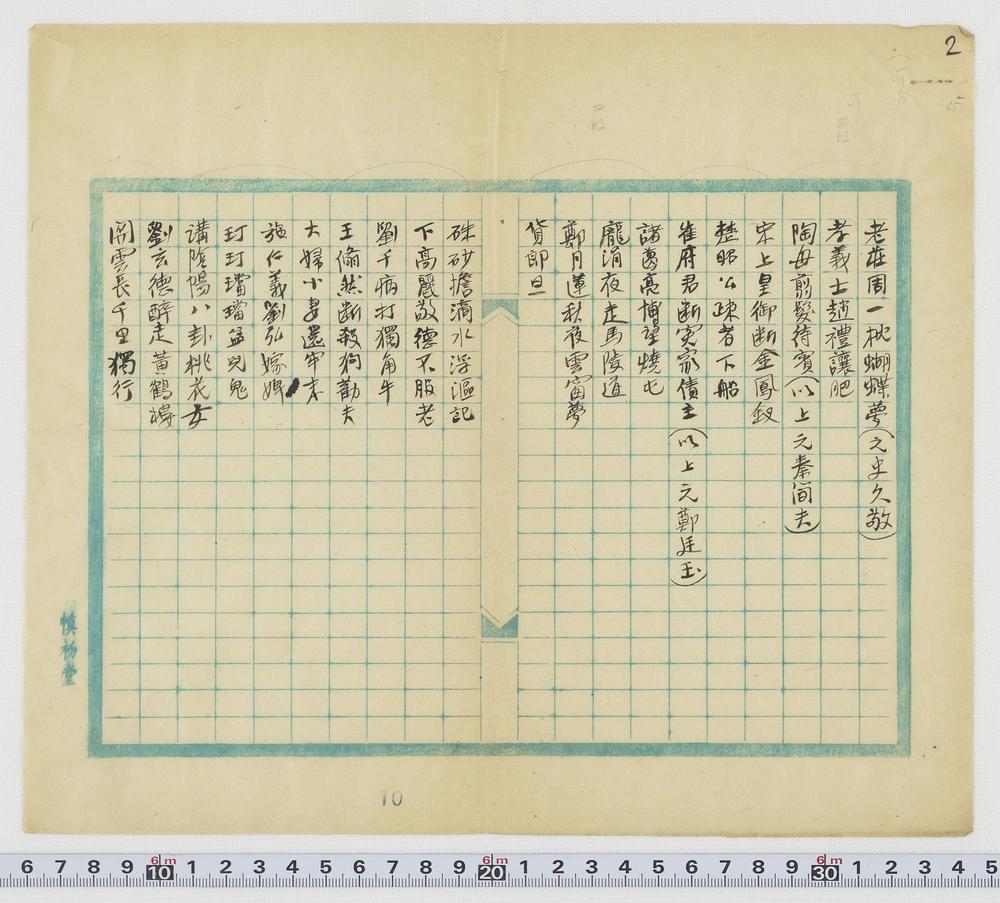 2
老莊周一枕蝴蝶夢（元史久敬）
孝義士趙禮讓肥
陶母翦髮待賓（以上元秦简夫）
宋上皇御断金鳳釵
楚昭公疎者下船
崔府君断冤家債主（以上元鄭廷玉）
諸葛亮博望燒屯
龐涓夜走馬陵道
鄭月蓮秋夜雲窗夢
貨郎旦
硃砂擔滴水浮漚記
下高麗敬德不服老
劉千病打獨角牛
王翛然断殺狗勸夫
大婦小妻還牢末
施仁義劉弘嫁婢
玎玎璫璫盆兒鬼
講陰陽八卦桃花女
劉玄德醉走黃鶴樓
関雲長千里獨行
慎初堂
10
6 7 8 9 10 1 2 3 4 5 6 7 8 9 20 1 2 3 4 5 6 7 8 9 30 1 2 3 4 5
6m 6m 6m